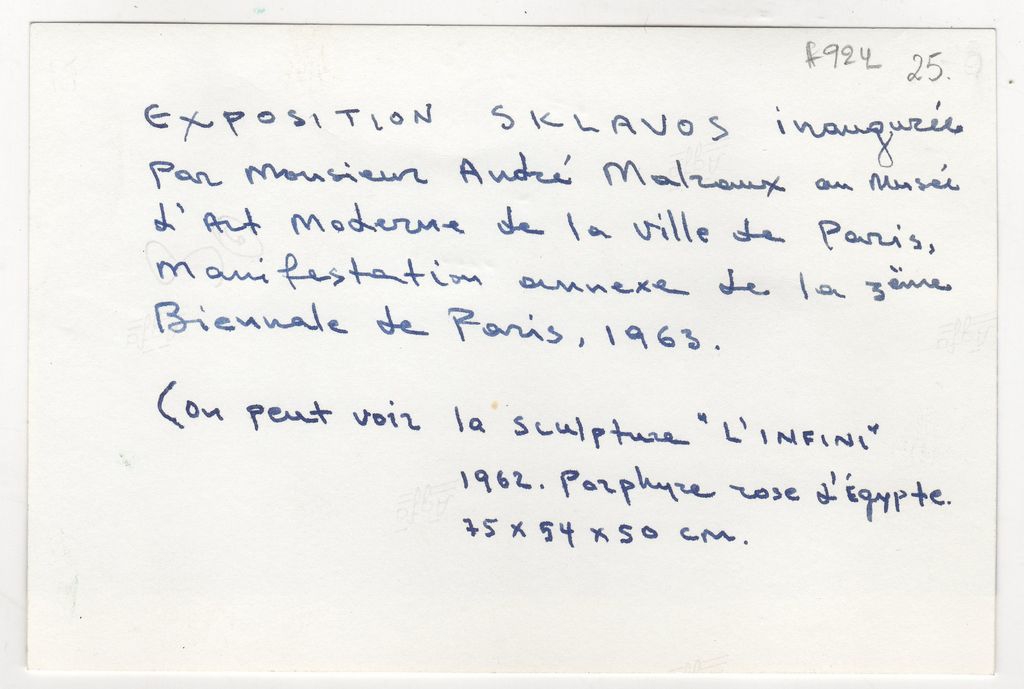 A924 25.
EXPOSITION SKLAVOS inaugurée
par Monsieur André Malraux au Musée
d'Art Moderne de la ville de Paris,
Manifestation annexe de la 3ème
Biennale de Paris, 1963.
(On peut voir la sculpture "L'INFINI"
1962. Porphyre rose d'Égypte.
75 x 54 x 50 cm.